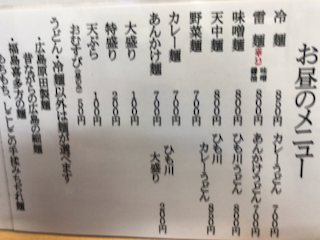 お昼のメニュー
冷麺 800円 カレーうどん 700円
雷麺(辛い) 味噌 醤油 800円 あんかけうどん 700円
味噌麺 800円 ひも川うどん 800円
天中麺 800円 ひも川 カレーうどん
野菜麺 700円
カレー麺 700円
あんかけ麺 700円 ひも川 大盛り 200円
大盛り 100円
特盛り 200円
天ぷら 100円
おむすび
うどん・冷麺以外は麺が選べます
・広島原田製麺
昔ながらの
・福島喜多方の麺
もちもち、しこしこの手揉みちぢれ麺